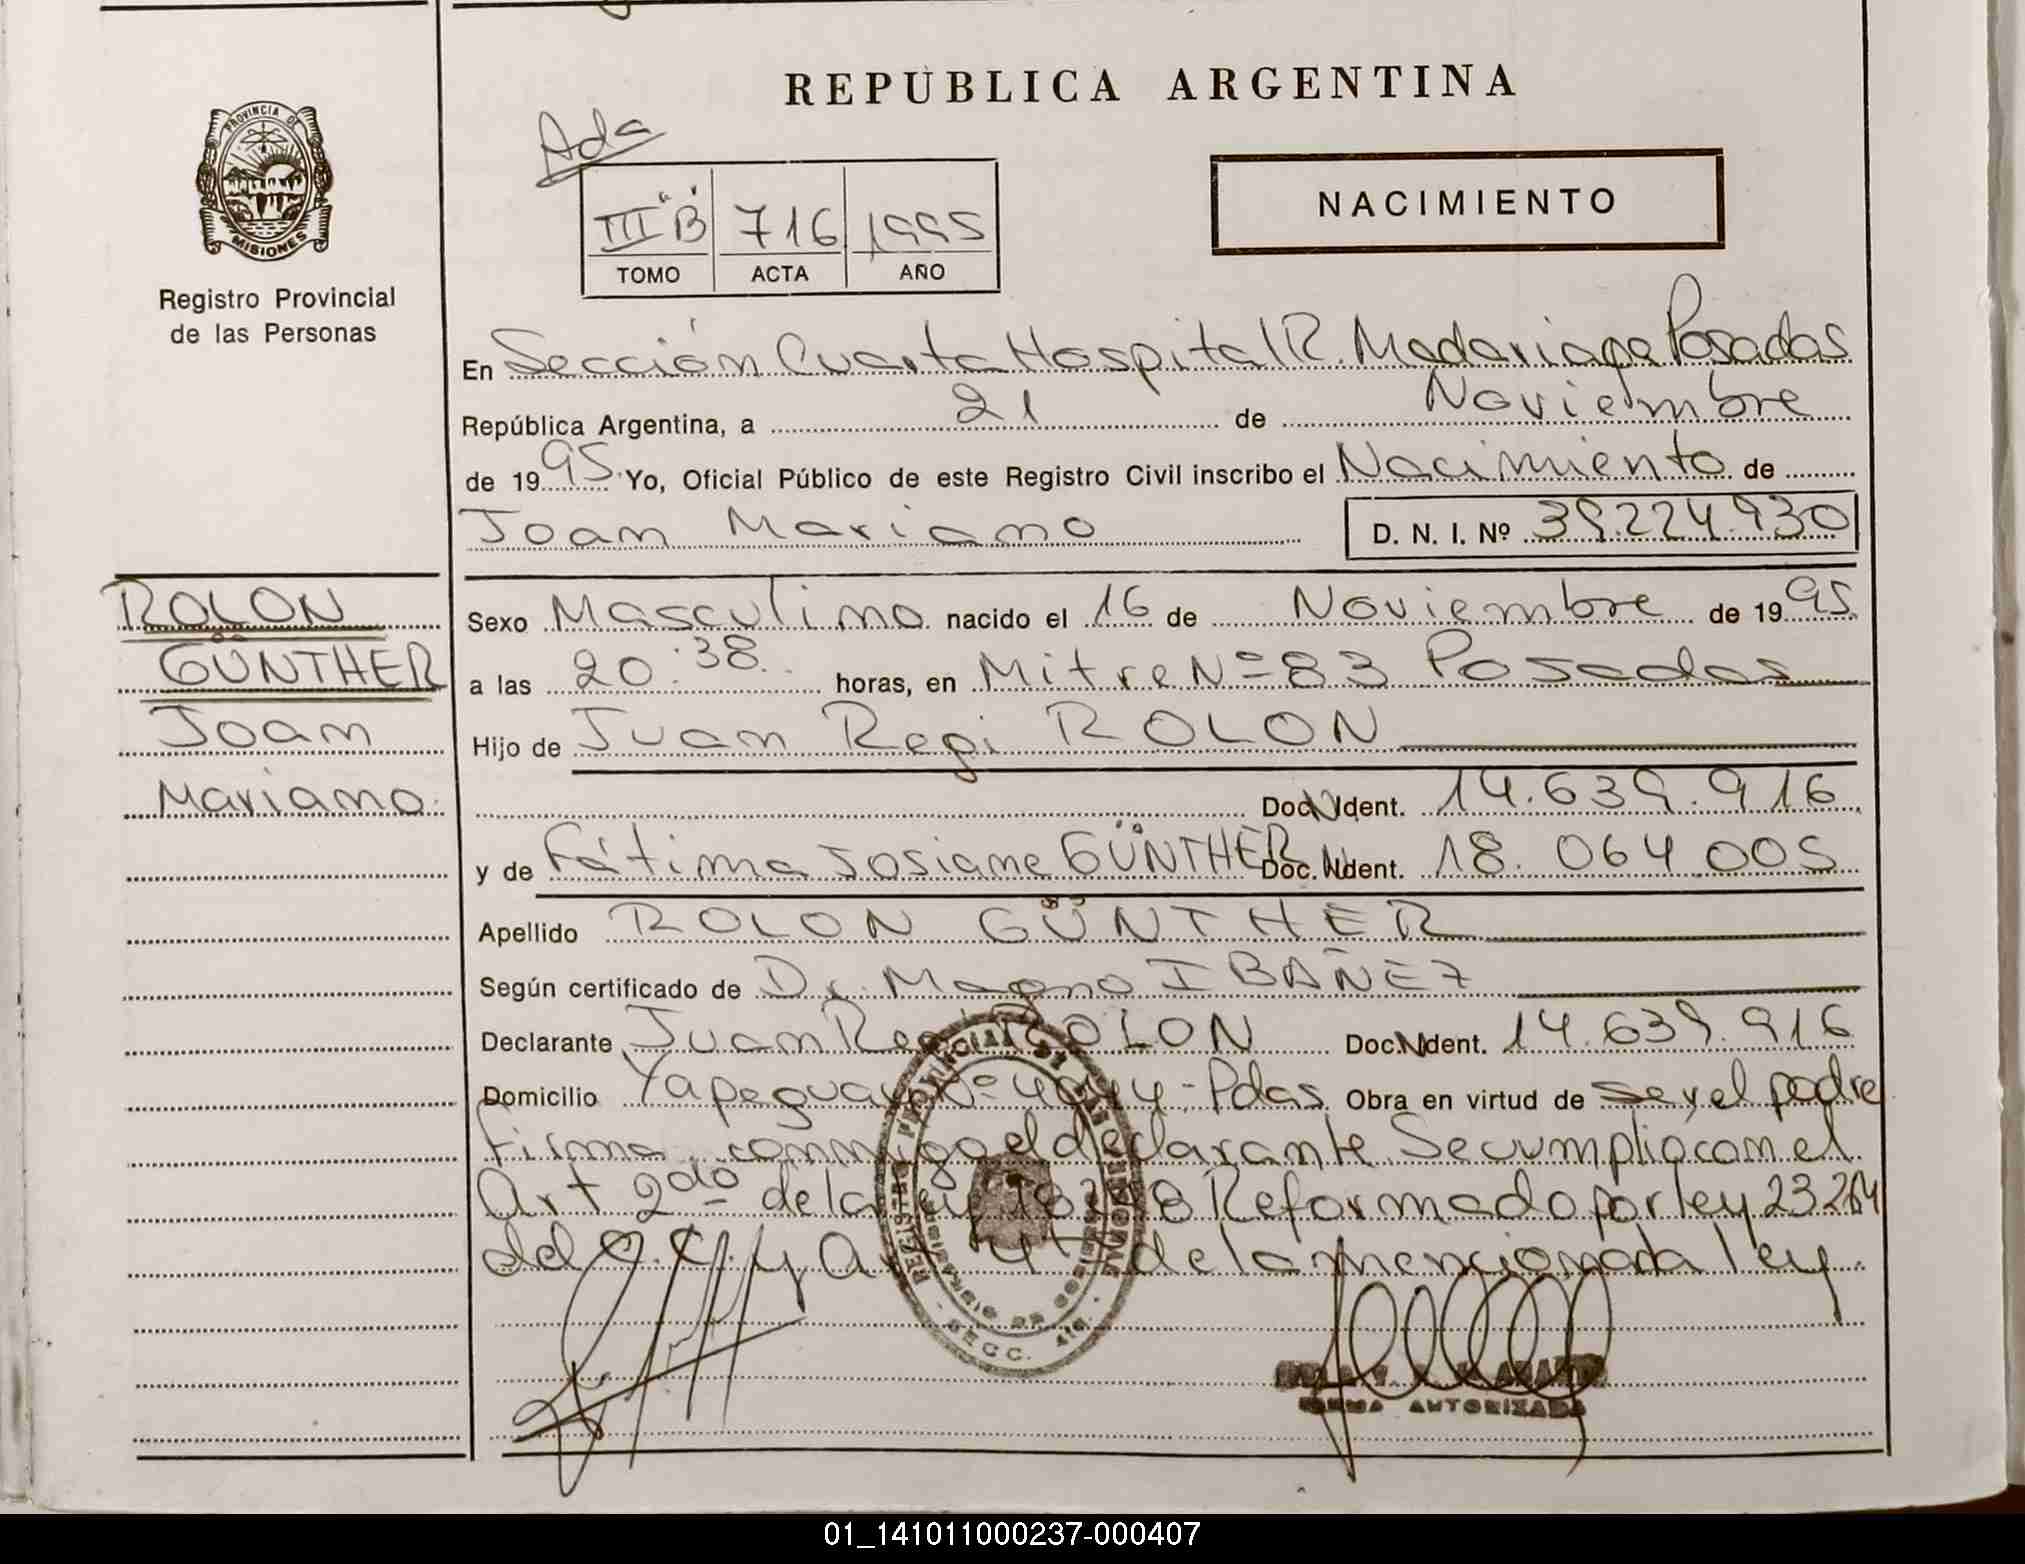 REPUBLICA ARGENTINA
Ada
NACIMIENTO
III "B" 716 1995
TOMO ACTA AÑO
PROVINCIA DE
MISIONES
Registro Provincial
de las Personas
En Sección Cuarta Hospital R. Madariaga Posadas
República Argentina, a 21 de Noviembre
de 1995 Yo, Oficial Público de este Registro Civil inscribo el Nacimiento de
Joan Mariano D. N. I. Nº 39.224.930
ROLON
GÜNTHER
Joan
Mariano
Sexo Masculino nacido el 16 de Noviembre de 1995
a las 20:38 horas, en Mitre Nº 83 Posadas
Hijo de Juan Regi ROLON
Doc. N Ident. 14.639.916
y de Fátima Josiane GÜNTHER Doc. N Ident. 18.064.005
Apellido ROLON GÜNTHER
Según certificado de Dr. Magno IBAÑEZ
Declarante Juan Regi ROLON Doc. N Ident. 14.639.916
Domicilio Yapeguay Nº 4044-Pdas Obra en virtud de ser el padre
firma conmigo el declarante Se cumplio con el
Art 2do de la ley 18248 Reformado por ley 23264
del C.C. y Art 4to de la mencionada ley.
REGISTRO PROVINCIAL DE LAS PERSONAS
SECC. 4ta.
FIRMA AUTORIZADA
01_141011000237-000407